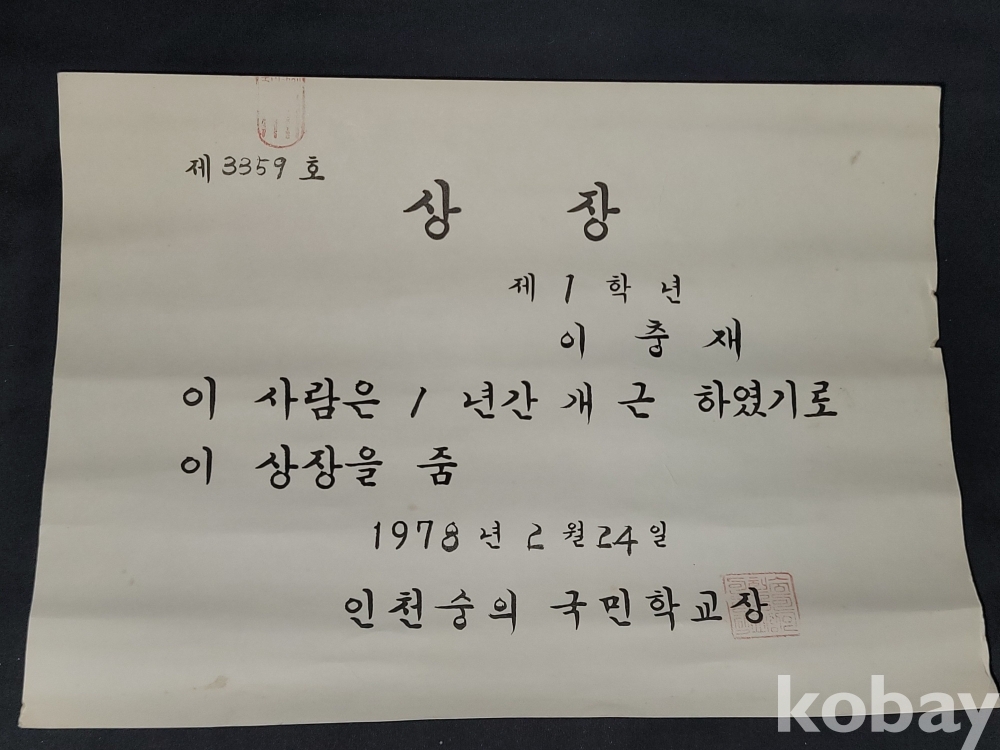 제 3359 호
상 장
제 1 학년
이 충 재
이 사람은 1 년간 개 근 하였기로
이 상장을 줌
1978 년 2 월 24 일
인천숭의 국민학교장
kobay